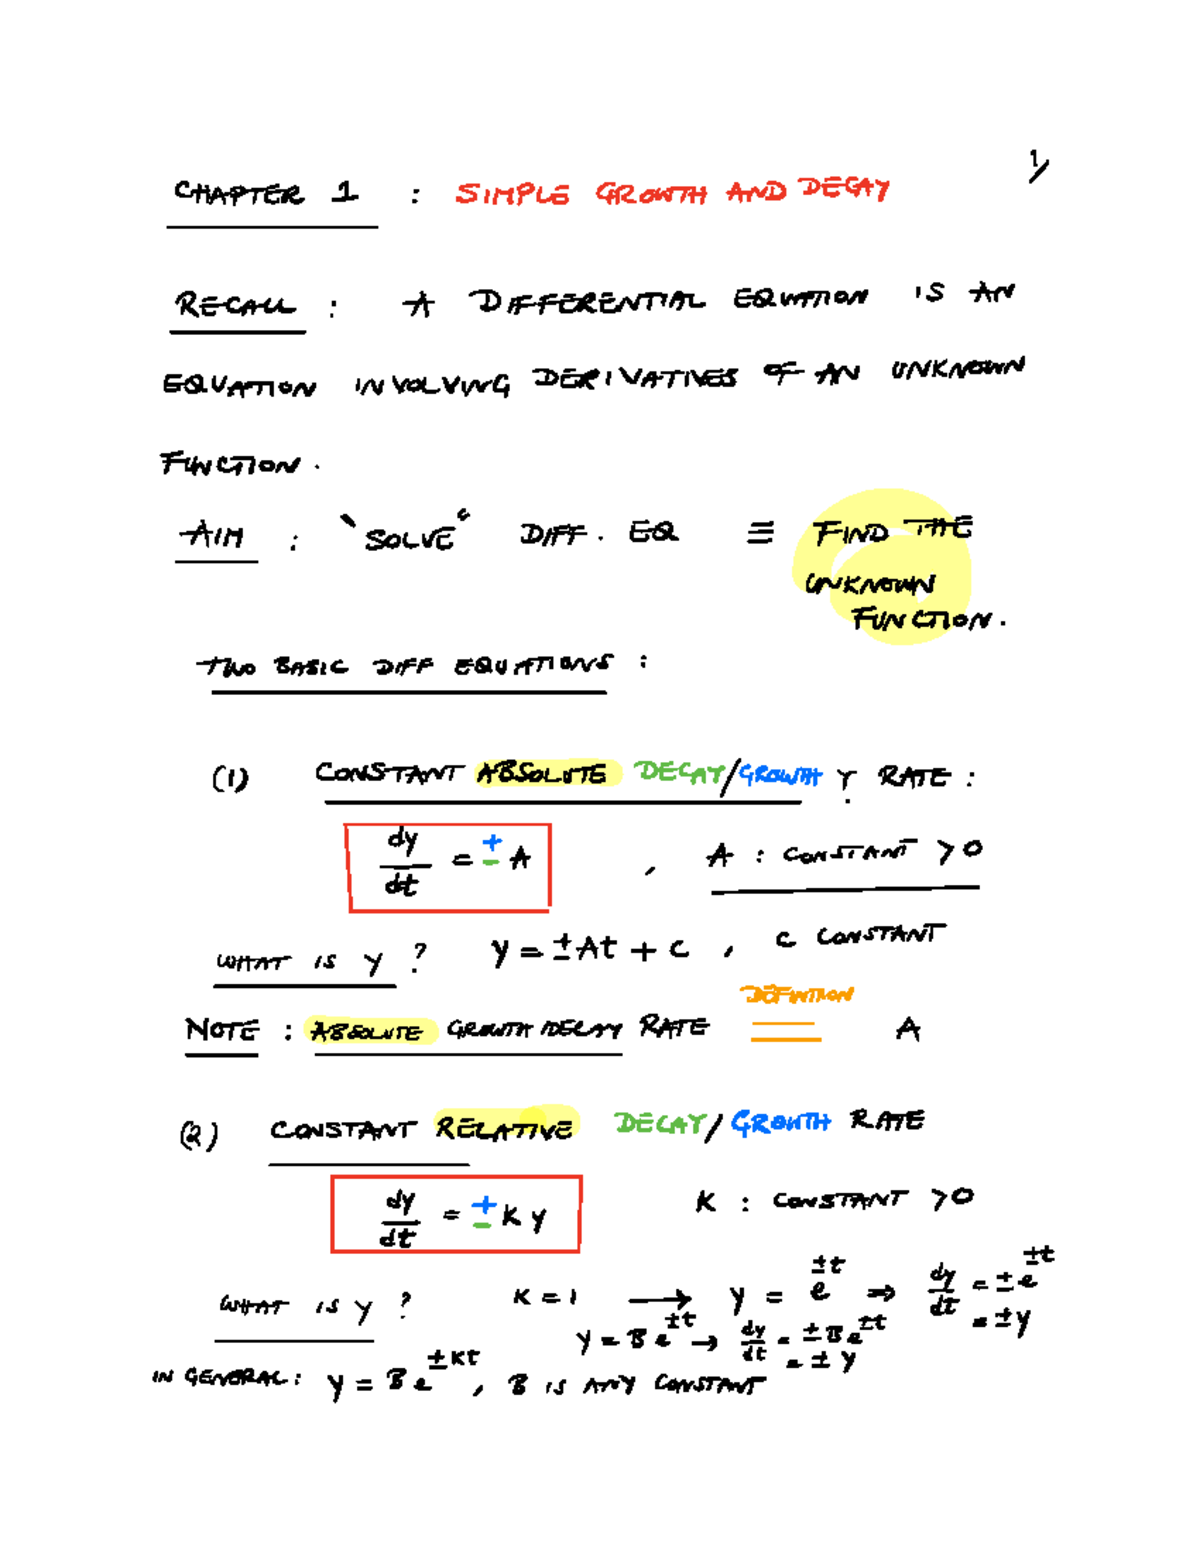 1/
CHAPTER 1 : SIMPLE GROWTH AND DECAY
RECALL : A DIFFERENTIAL EQUATION IS AN
EQUATION INVOLVING DERIVATIVES OF AN UNKNOWN
FUNCTION.
AIM : "SOLVE" DIFF. EQ ≡ FIND THE
UNKNOWN
FUNCTION.
TWO BASIC DIFF EQUATIONS :
(1) CONSTANT ABSOLUTE DECAY/GROWTH Y RATE :
dy/dt = ± A , A : CONSTANT > 0
WHAT IS Y ? y = ±At + C , C CONSTANT
DEFINITION
NOTE : ABSOLUTE GROWTH/DECAY RATE = A
(2) CONSTANT RELATIVE DECAY/GROWTH RATE
dy/dt = ± K y K : CONSTANT > 0
WHAT IS Y ? K = 1 → y = e^{±t} ⇒ dy/dt = ± e^{±t} = ± y
y = B e^{±t} → dy/dt = ± B e^{±t} = ± y
IN GENERAL : y = B e^{±Kt} , B IS ANY CONSTANT